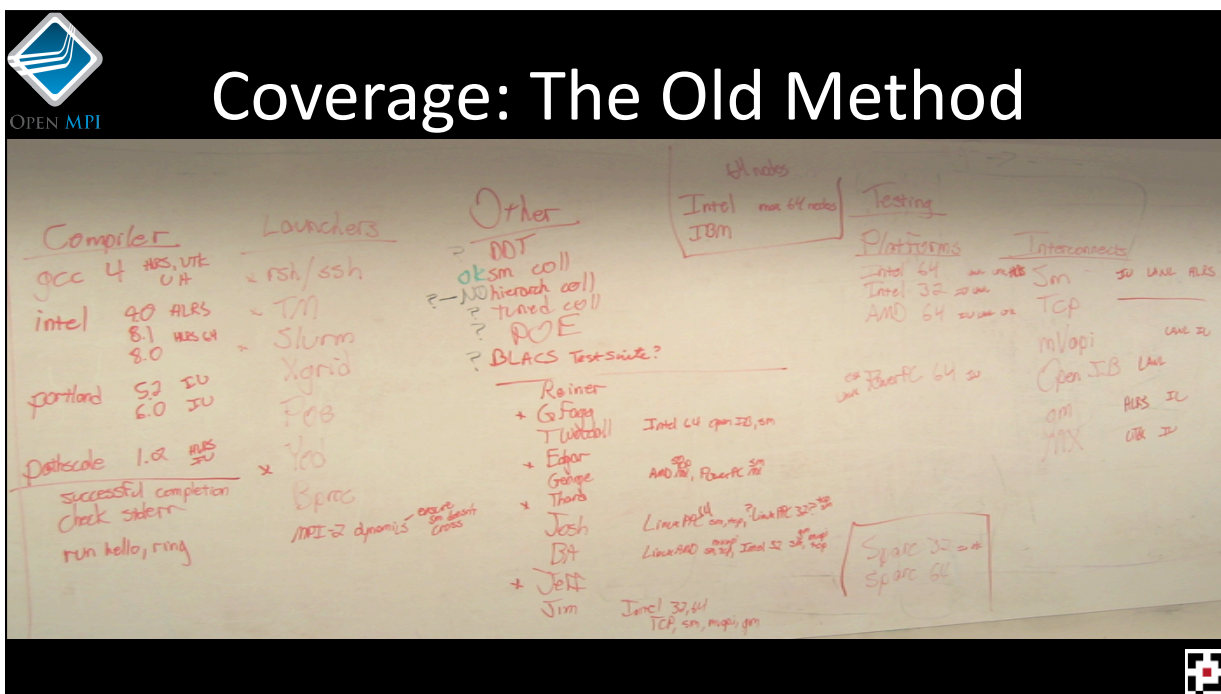 OPEN MPI
Coverage: The Old Method
Compiler
gcc 4 HLRS, UTK
UH
intel 9.0 HLRS
8.1 HLRS 64
8.0
portland 5.2 IU
6.0 IU
pathscale HLRS
IU
successful completion
check stderr
run hello, ring
Launchers
rsh/ssh
TM
Slurm
Xgrid
Poe
Yod
Bproc
MPI-2 dynamics - ensure
sm doesn't
cross
Other
? DDT
ok sm coll
? - NO hierarch coll
? tuned coll
? POE
? BLACS Test Suite?
Rainer
* G Fagg
T Woodall Intel 64 open IB, sm
* Edgar
George AMD PowerPC
* Thara
Josh
BA
* Jeff
Jim Intel 32, 64
TCP, sm, mvapi, gm
64 nodes
Intel max 64 nodes
IBM
Testing
Platforms
Intel 64
Intel 32
AMD 64
PowerPC 64 IU
Sparc 32
Sparc 64
Interconnects
Sm IU LANL HLRS
TCP
mVapi LANL IU
Open IB LANL
gm HLRS IU
MX UTK IU